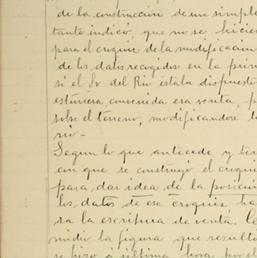 de la construccion de un simple
tanto indicó, que no se hicier
para el croquis de la modificacion
de los datos recogidos en la prim
si el Sr. del Rio estaba dispuesto
estuviera convenida esa venta, p
sobre el terreno, modificandose t
rio-
Segun lo que antecede y ten
con que se construyó el croquis
para dar idea de la posicion
los datos de ese croquis ha
sa la escritura de venta. Se
midio la figura que resulto
se hizo a ultima hora por el